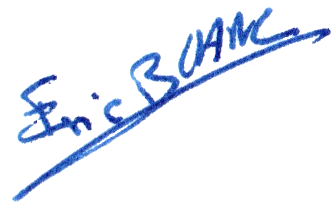 Eric BLANC